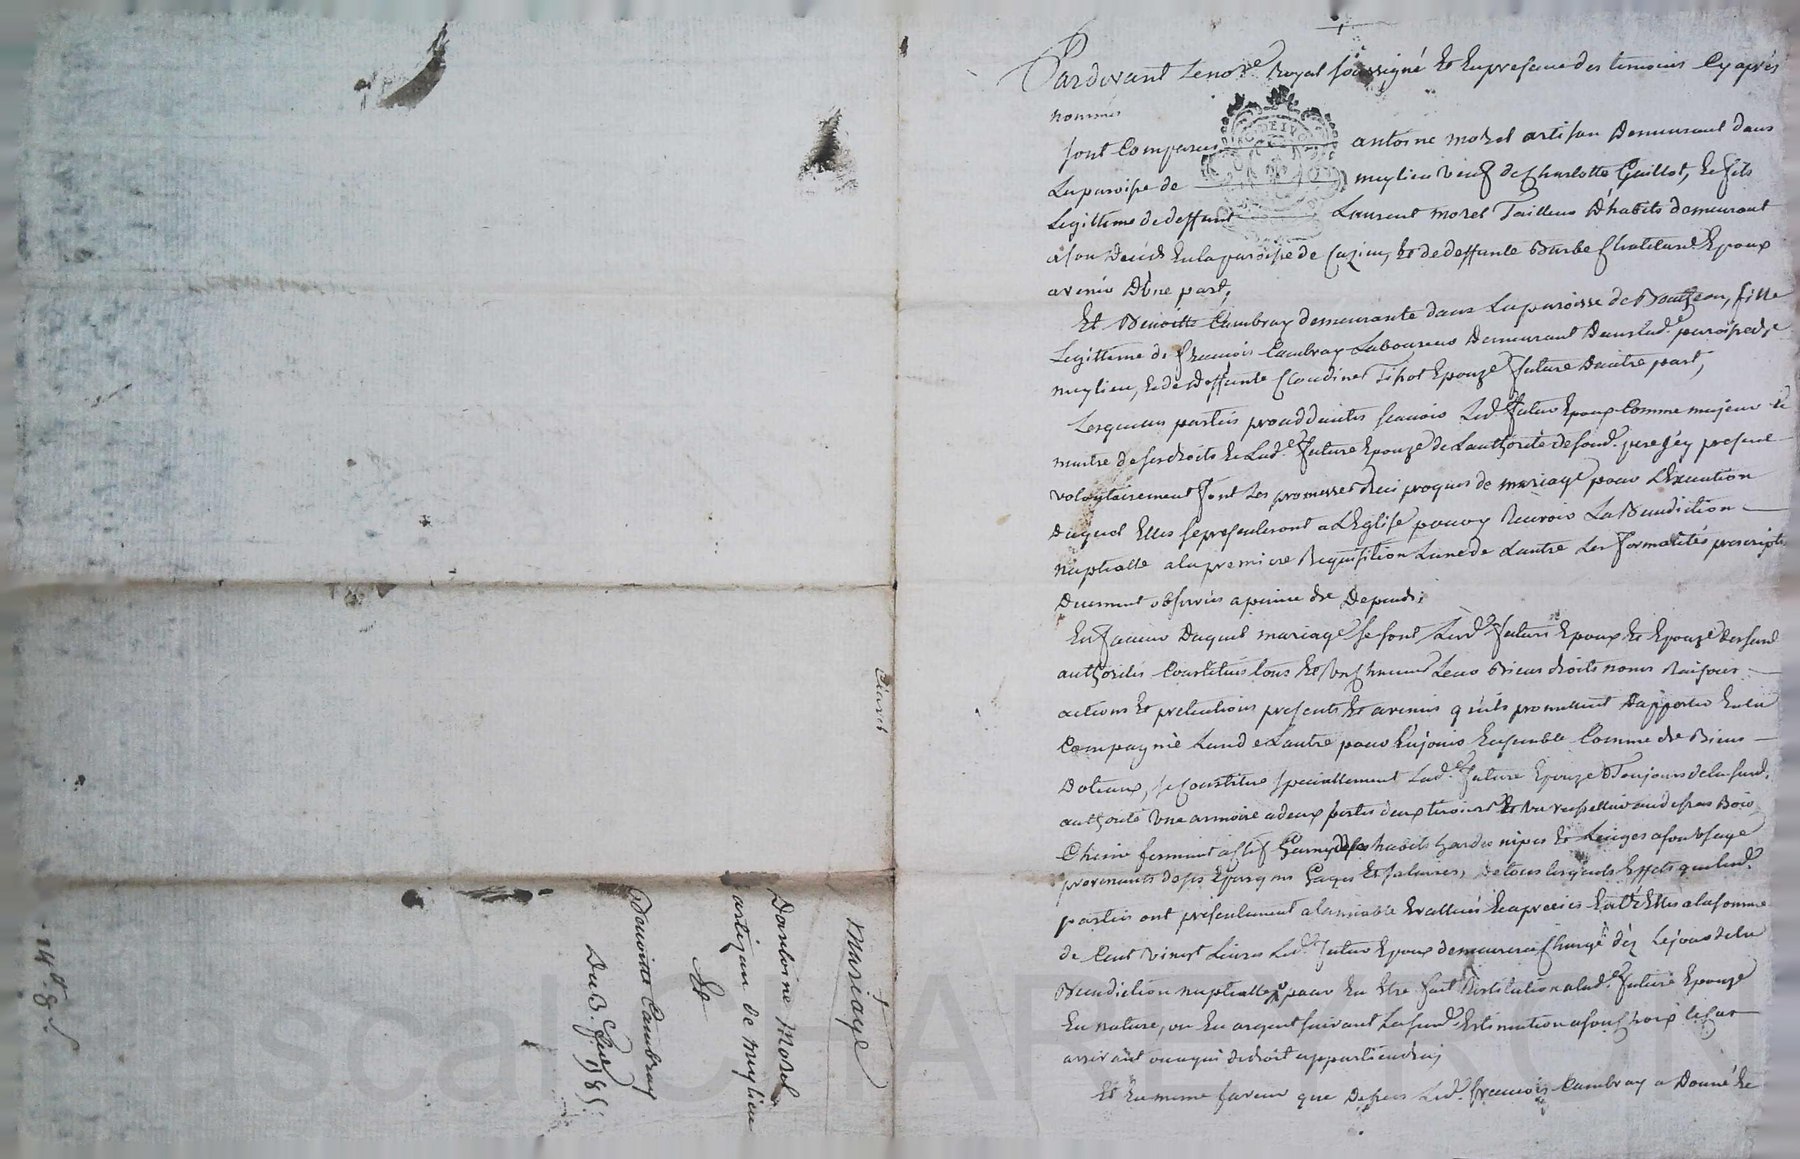 Pardevant Le no.re Royal soussigné Et En presence des temoins Cy aprés
nommés
sont Comparus antoine morel artisan Demeurant dans
La paroisse de meylieu veuf de Charlotte Guillot, Le fils
Legittime de deffunt Laurent morel Tailleur D'habits demeurant
a son Deceds En la paroisse de Et de deffunte Barbe Chatelard Epoux
avenir D'une part,
Et Benoitte Cambray demeurante dans La paroisse de fille
Legittime de francois Cambray Laboureur Demeurant Dans Lad.e paroisse de
meylieu, Et de deffunte Claudine Epouze future D'autre part,
Lesquelles parties proceddantes scavoir Led. futur Epoux Comme majeur Et
maitre de ses droits Et Lad.e future Epouze de L'authorité de son d. pere icy present
volontairement font Les promesses Reciproques de mariage pour L'Execution
Duquel Elles se presenteront a L'Eglise pour y Recevoir La Benediction
nuptialle a la premiere Requisition L'une de L'autre Les formalités prescriptes
Duement observées a peine de Depends;
En faveur Duquel mariage se sont Lesd. futurs Epoux Et Epouze
authorités Constitués tous Et Un Chacun Leurs Biens droits noms Raisons
actions Et pretentions presents Et avenirs qu'ils promettent D'apporter En la
Compagnie L'un de L'autre pour En jouir Ensemble Comme de Biens
Dotaux, se Constitue speciallement Lad.e future Epouze Toujours de la sus d.
authorité Une armoire a deux portes deux tiroirs Et Bois
Chesne fermant a Clef Garnye de ses habits hardes nipes Et Linges a son Usage
provenants de ses Epargnes Gages Et salaires, de tous lesquels Effets que lesd.
parties ont presentement a l'amiable Evallués Et apreciés Entre Elles a la somme
de Cent vingt Livres Led. futur Epoux demeurera Chargé dez Le jour de la
Benediction nuptialle pour En Etre fait Restitution a lad.e future Epouze
En nature, ou En argent suivant La sus d. Estimation a son choix le Cas
arrivant ou a qui de droit appartiendra;
Et En meme faveur que Dessus Led. francois Cambray a Donné Et
Mariage
D'antoine Morel
artisan de meylieu
Et
Benoitte Cambray